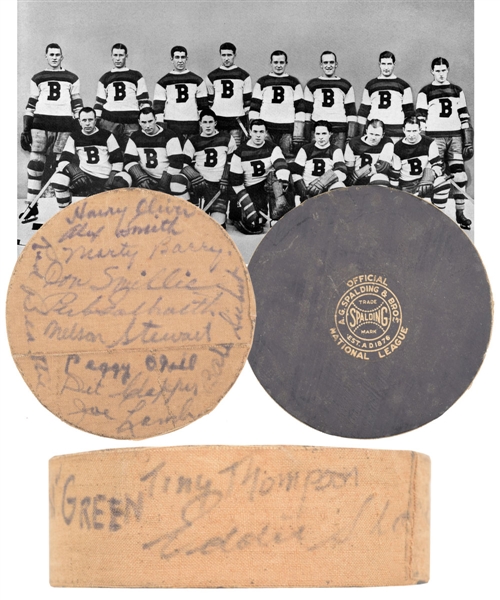 B B B B B B B B
B B B B B B
Harry Oliver
Alex Smith
Marty Barry
Don Smillie
Nelson Stewart
Peggy O'Neil
Dit Clapper
Joe Lamb
OFFICIAL
A.G. SPALDING & BRO.
TRADE
SPALDING
MARK
EST. A.D 1876
NATIONAL LEAGUE
GREEN
Tiny Thompson
Eddie